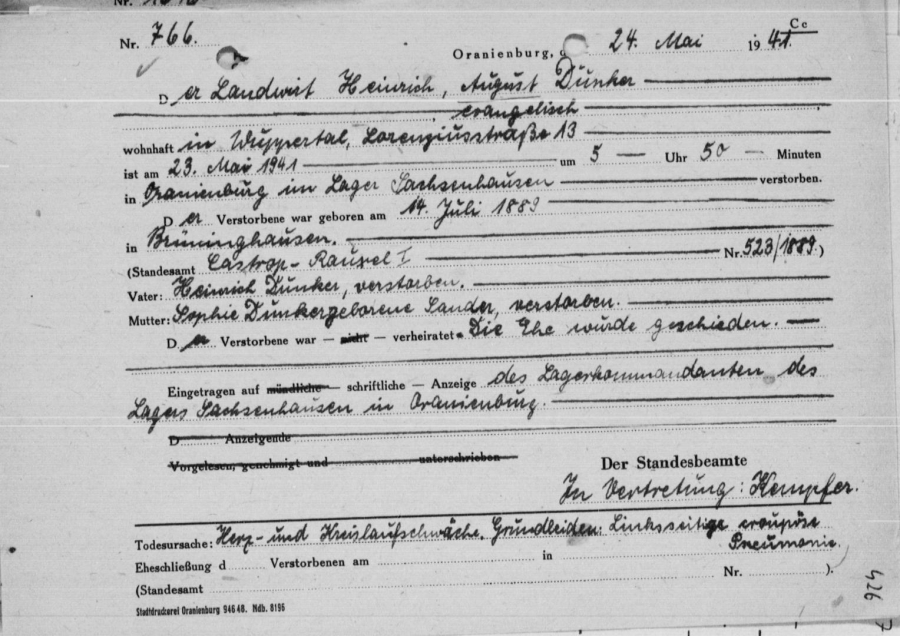 Nr. 766.
Cc
Oranienburg, d 24. Mai 1941.
Der Landwirt Heinrich, August Dunker
evangelisch
wohnhaft in Wuppertal, Lorenziusstraße 13
ist am 23. Mai 1941 um 5 Uhr 50 Minuten
in Oranienburg im Lager Sachsenhausen verstorben.
Der Verstorbene war geboren am 14. Juli 1889
in Brüninghausen.
(Standesamt Castrop-Rauxel I Nr. 523/1889.)
Vater: Heinrich Dunker, verstorben.
Mutter: Sophie Dunker geborene Sander, verstorben.
Der Verstorbene war — nicht — verheiratet. Die Ehe wurde geschieden.
Eingetragen auf mündliche — schriftliche — Anzeige des Lagerkommandanten des
Lagers Sachsenhausen in Oranienburg.
D Anzeigende
Vorgelesen, genehmigt und unterschrieben
Der Standesbeamte
In Vertretung: Kempfer.
Todesursache: Herz- und Kreislaufschwäche. Grundleiden: Linksseitige croupöse
Pneumonie.
Eheschließung d Verstorbenen am in
(Standesamt Nr. ).
Stadtdruckerei Oranienburg 946 48. Ndb. 8196
426
7